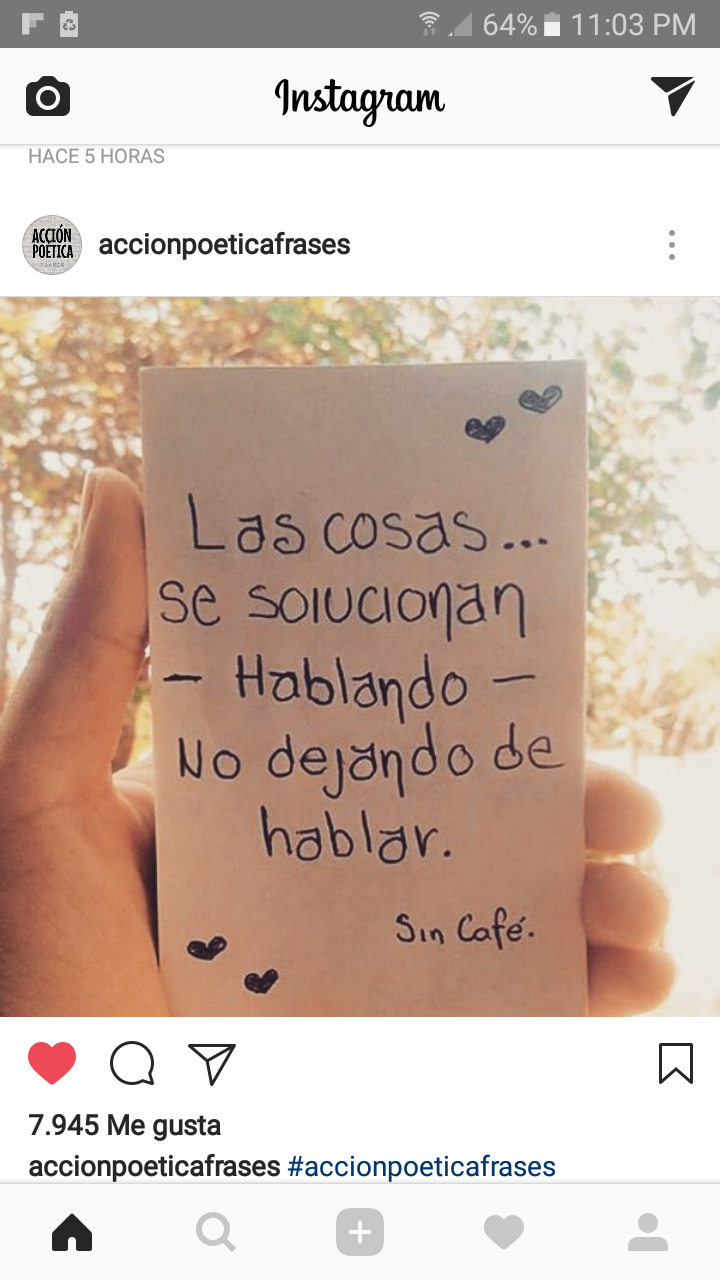 64% 11:03 PM
Instagram
HACE 5 HORAS
ACCIÓN
POETICA
accionpoeticafrases
Las cosas...
se solucionan
- Hablando -
No dejando de
hablar.
Sin Café.
7.945 Me gusta
accionpoeticafrases #accionpoeticafrases